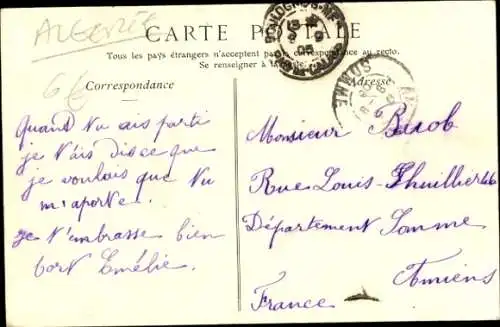 ALGERIE
CARTE POSTALE
Tous les pays étrangers n'acceptent pas la correspondance au recto.
Se renseigner à la
Correspondance
Adresse
6f
Quand tu ais parti
je t'ais disce que
je voulais que tu
m'aporte.
je t'embrasse bien
fort Emélie.
BOULOGNE-S-MER
PAS-DE-CALAIS
SOMME
Monsieur Barob
Rue Louis-Thuillier
Département Somme
Amiens
France